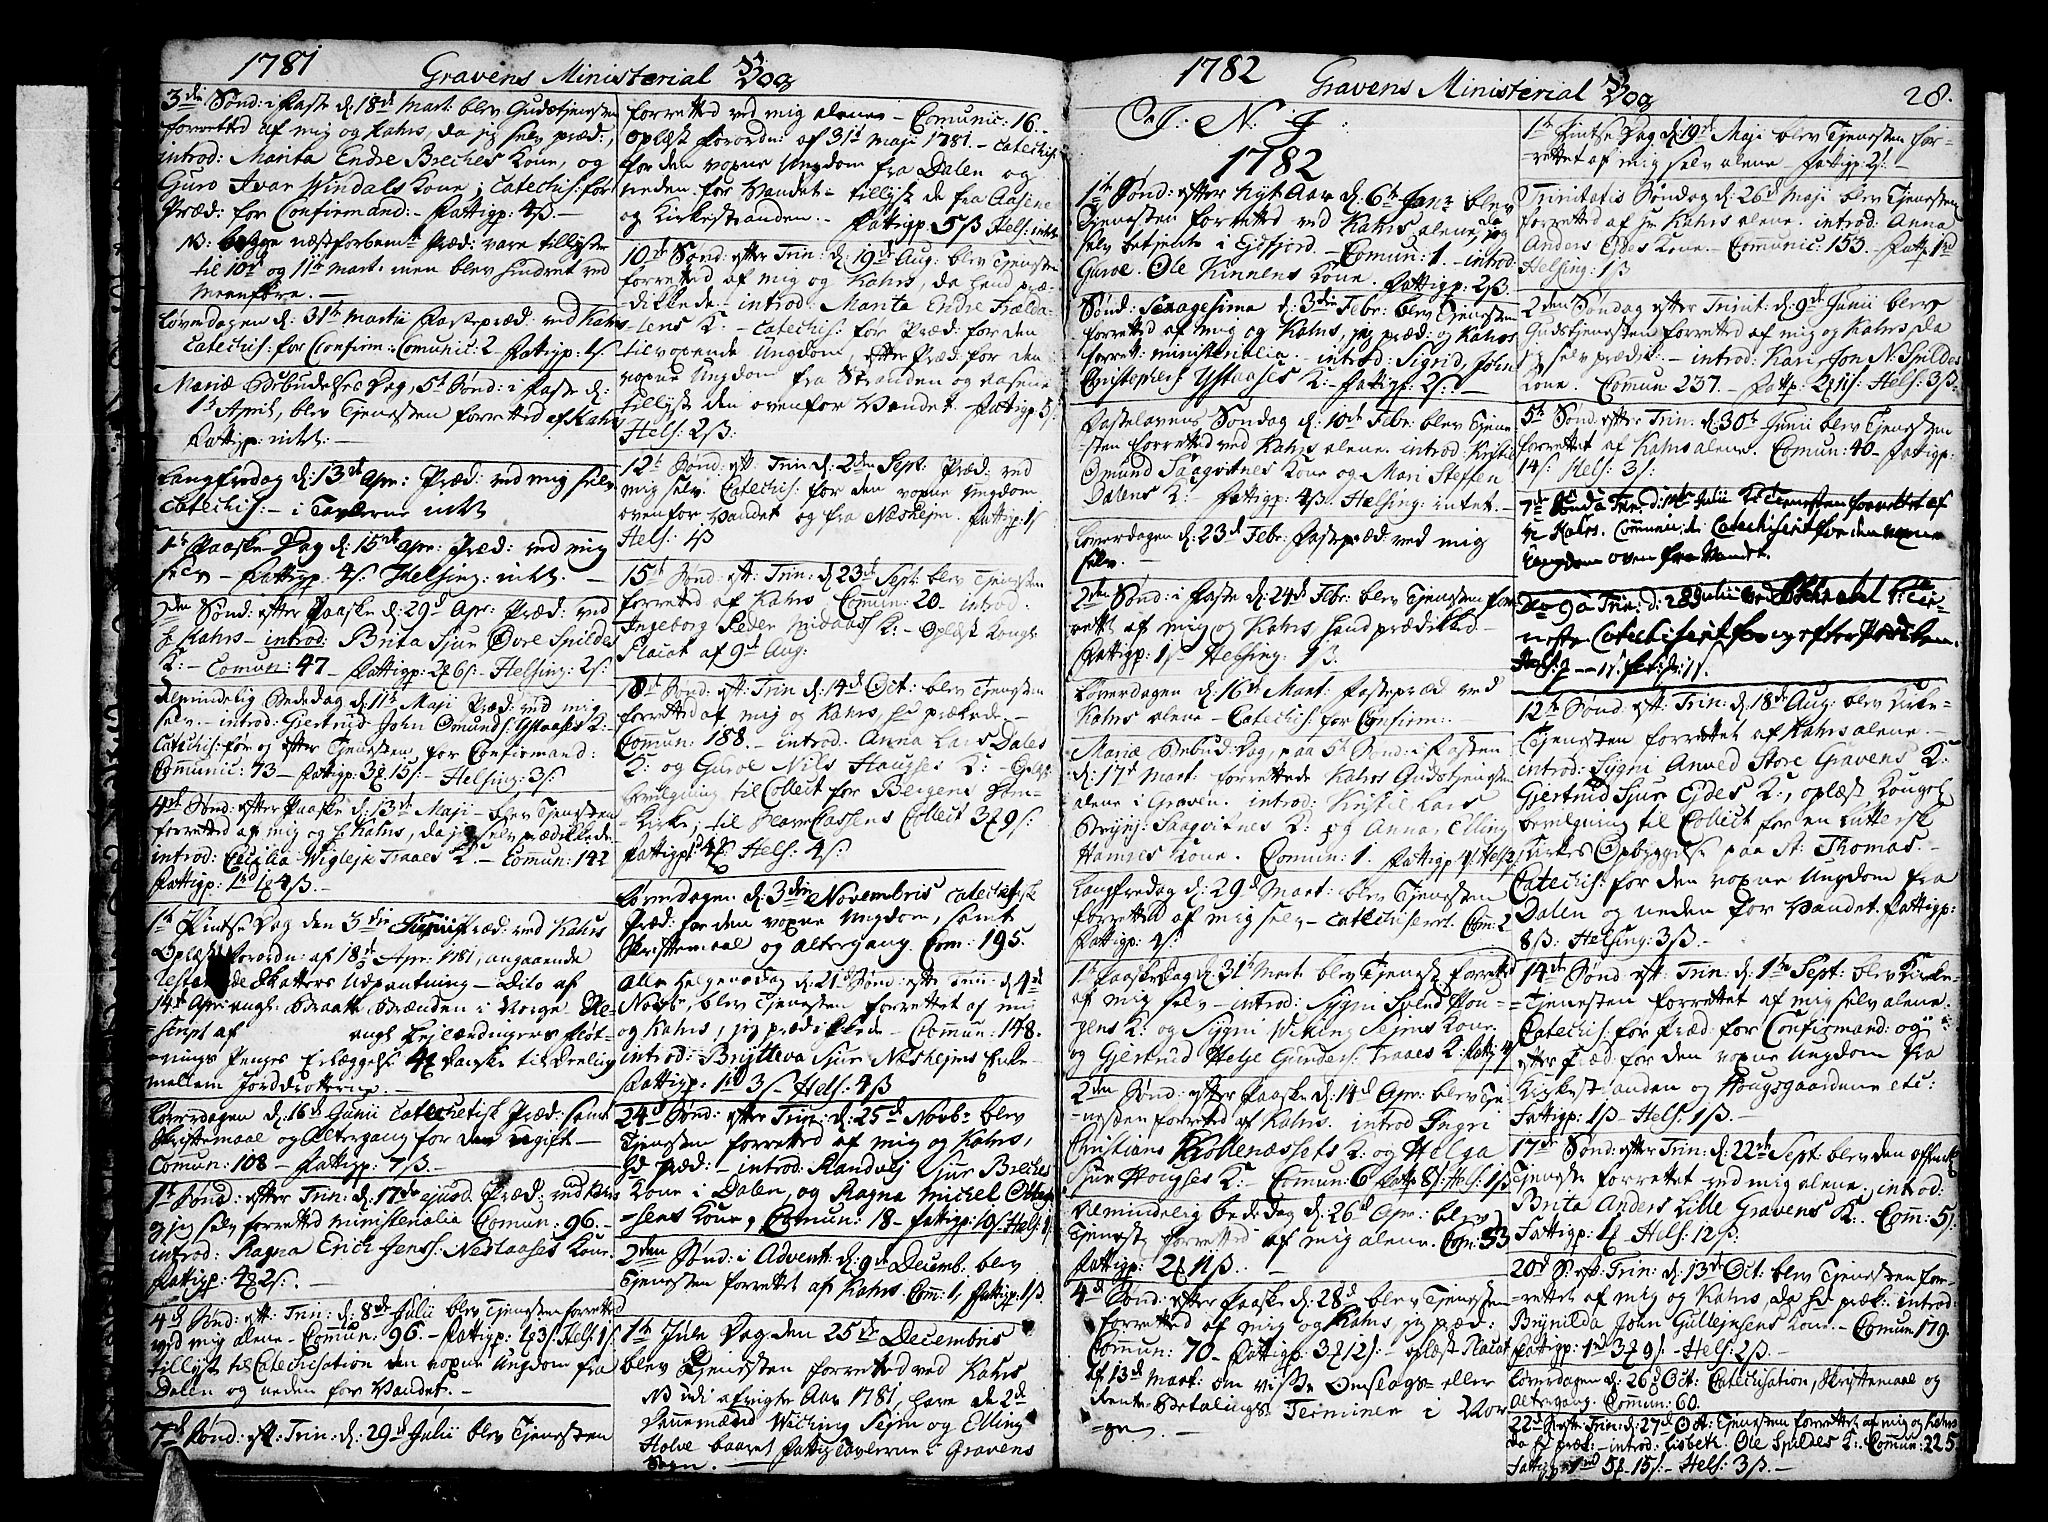 1781 Gravens Ministerial Bog
3die Sønd: i Faste d: 18de Mart: blev Gudstjenesten
forretted af mig og Kahrs, da jeg selv præd:,
introd: Marita Endre Breches Kone, og
Guro Ivar Windals Kone; Catechis: for
Præd: for Confirmand: - Fattigp: 4ß -
N: begge næstforbem: Præd: vare tillyste
til 10d og 11te Mart: men blev hindret ved
Meenføre. -
Løverdagen d: 31te Martii Fastepræd: ved Kahrs
Catechis: for Confirm: Comunic: 2 - Fattigp: 1ß:
Mariæ Bebudelses Dag, 5te Sønd: i Faste d:
1te April, blev Tjenesten forretted af Kahrs
Fattigp: intet: -
Langfredag d: 13de Apr: Præd: ved mig selv
Catechis: - i Tavlerne intet
1te Paaske Dag d: 15de Apr: Præd: ved mig
selv - Fattigp: 4ß: Helsing: intet. -
2den Sønd: efter Paaske d: 29d Apr: Præd: ved
Kahrs - introd: Brita Sjur Øvre Spildes
K: - Comun: 47 - Fattigp: 2 6ß: - Helsing: 2ß:
Almindelig Bededag d: 11te Maji Præd: ved mig
selv - introd: Gjertrud John Omunds: Ystaases K:
Catechis: før og efter Tjenesten for Confirmand:
Communic: 73 - Fattigp: 3 15ß: - Helsing: 3ß:
4de Sønd: efter Paaske d: 13de Maji - blev Tjenesten
forretted af mig og h: Kahrs, da jeg selv prædikede
introd: Cecilia Wiglejk Traaes K. - Commun: 142
Fattigp: 1rd 1 4ß. -
1te Pintse Dag den 3die Junii Præd: ved Kahrs
Oplæst Forordn: af 18de Apr: 1781, angaaende
Skatters Udpantning - Dito af
14de Apr: angl: Braate Brænden i Norge Re-
=script af angl: Lejlændingers
-nings Penges Erlæggelse 4 danske til
mellem Jorddrotterne -
Løverdagen d: 16d Junii Catechetisk Præd: samt
Skriftemaal og Altergang for de ugift -
Comun: 108 - Fattigp: 7ß. -
1te Sønd: efter Trin: d: 17de ejusd. Præd: ved Kahrs
og jeg selv forretted ministerialia Comun: 96. -
introd: Ragna Erich Jens: Nestaases Kone.
Fattigp: 4 2ß:. -
4de Sønd: eft: Trin: d: 8de Julii blev Tjenesten forretted
ved mig alene - Comun: 96. - Fattigp: 2 3ß Hels: 1ß:
tillyst til Catechisation den voxne Ungdom fra
Dalen og neden for Vandet. -
7de Sønd: eft: Trin: d: 29de Julii blev Tjenesten
forretted ved mig alene - Comunic: 16. -
oplæst forordn: af 31te Maji 1781. - Catechis:
for den voxne Ungdom fra Dalen og
neden for Vandet - tillyst de fra Aasene
og Kirkestranden. - Fattigp: 5ß Hels: intet
10de Sønd: efter Trin: d: 19de Aug: blev Tjenesten
forretted af mig og Kahrs, da hand præ-
-dikkede - introd: Marita Endre Trælda-
-lens K: - Catechis: for Præd: for den
tilvoxende Ungdom, efter Præd: for den
voxne Ungdom fra Stranden og Aasene
tillyst den ovenfor Vandet. - Fattigp: 5ß:
Hels: 2ß:
12te Sønd: eft: Trin d: 2den Sept: Præd: ved
mig selv. Catechis: for den voxne Ungdom
ovenfor Vandet og fra Næshejm. Fattigp: 1ß
Hels: 4ß
15de Sønd: eft: Trin: d: 23de Sept: blev Tjenesten
forretted af Kahrs, Comun: 20 - introd.
Ingeborg Peder Midaas K: - Oplæst Kongl:
Placat af 9de Aug:
18de Sønd: eft: Trin d: 14de Oct: blev Tjenesten
forretted af mig og Kahrs, hd prækede. -
Comun: 188. - introd: Anna Lars Dales
K: og Guroe Nils Haugses K: - Oplæst
bevilgning til Collect for Bergens Dom-
-Kirke; til Collect 3 9ß:
Fattigp: 4ß Hels: 4ß:
Løverdagen d: 3die Novembris Catechetisk
Præd: for den voxne Ungdom, samt
Skriftemaal og Altergang. Com: 195.
Alle Helgensdag d: 21de Sønd: efter Trin: d: 4de
Novb:, blev Tjenesten forrettet af mig
og Kahrs, jeg prædikkede - Comun: 148.
introd: Brytteva Sjur Næshejms Enke
Fattigp: 1rd 3ß: Hels: 4ß
24de Sønd: efter Trin: d: 25de Novb: blev
Tjenesten forretted af mig og Kahrs,
hd præd: - introd: Randvej Sjur Breches
Kone i Dalen, og Ragna Michel Otte
=sens Kone, Comun: 18 - Fattigp: 10ß: Hels: 1ß
2den Sønd: i Advent: d: 9de Decemb: blev
Tjenesten forrettet af Kahrs. Com: 1, Fattigp: 1ß.
1te Jule Dag den 25de Decembris
blev Tjenesten forretted ved Kahrs
NB i di afvigte Aar 1781, have de 2de
Dannemænd Wiching Sejm og Elling
Holve baaret Fattig Tavlerne i Gravens
Sogn. -
1782 Gravens Ministerial Bog 28.
I. N. J:
1782
1te Sønd: efter Nyt Aar d: 6te Janr: blev
Tjenesten forretted ved Kahrs alene, da jeg
selv betjente i Ejdfjord. - Comun: 1. - introd
Guroe. Ole Kinnens Kone. Fattigp: 2ß.
Sønd: Sexagesima d: 3die Febr: blev Tjenesten
forretted af mig og Kahrs, jeg præd: og Kahrs
forret: ministerialia. - introd: Sigrid, John
Christophers: Ystaases K: - Fattigp: 2ß: -
Fastelavens Søndag d: 10de Febr: blev Tjene-
sten forretted ved Kahrs alene. introd: Kristi
Omund Saaqvitnes Kone og Mari Steffen
Dalens K: Fattigp: 4ß. Helsing: intet. -
Løverdagen d: 23de Febr: Fastepræd: ved mig
selv. -
2den Sønd: i Faste d: 24de Febr: blev Tjenesten for-
rettet af mig og Kahrs, hand prædikked -
Fattigp: 1ß - Helsing: 1ß.
Løverdagen d: 16de Mart: Fastepræd ved
Kahrs alene - Catechis: for Confirm: -
Mariæ Bebud: Dag, paa 5te Sønd: i Fasten
d: 17de Mart: forrettede Kahrs Gudstjenesten
alene i Graven. introd: Kristi Lars
Brynj: Saaqvitnes K: og Anna, Elling
Hamses Kone. Comun: 1. Fattigp 4ß: Hels 2ß
Langfredag d: 29de Mart: blev Tjenesten
forretted af mig selv - Catechiseret. Com: 2
Fattigp: 4ß:
1te Paaske Dag d: 31te Mart: blev Tjenest: forretted
af mig selv - introd: Sygni Svend Hou-
gens K: og Sygni Viking Sejms Kone,
og Gjertrud Helje Gunders: Traaes K: Fattig: 4ß
2den Sønd: efter Paaske d: 14de Apr: blev Tje
-nesten forretted af Kahrs. introd Ingri
Christians Kollenæssets K: og Helga
Sjur Hougses K: - Comun: 6 Fattp: 8ß: Hels: 1ß
Almindelig bededag d: 26de Apr: blev
Tjenesten forretted af mig alene. Com: 53
Fattigp: 2 11ß. -
4de Sønd: efter Paaske d: 28de blev Tjenesten
forretted af mig og Kahrs, jeg præd:
Comun: 70 - Fattigp: 3 12ß: - oplæst Placat
af 13de Mart: om visse Omslags= eller
Rente-Betalings Terminer i Nor
=ge. -
1te Pintse Dag d: 19de Maji blev Tjenesten for-
=rettet af mig selv alene Fattigp: 2ß: -
Trinitatis Søndag d: 26d Maji blev Tjenesten
forretted af hr Kahrs alene. introd: Anna
Anders Ejdes Kone. Comunic: 153. - Fattp: 1rd
Helsing: 1ß
2den Søndag efter Trinit: d: 9de Junii blev
Gudstjenesten forretted af mig og Kahrs, da
jeg selv prædik: - introd: Kari Jon N. Spildes
Kone. Comun: 237. - Fattp: 2 1ß: Hels: 3ß.
5te Sønd: efter Trin: d: 30te Junii blev Tjenesten
forrettet af Kahrs alene. Comun: 40 - Fattigp:
14ß: Hels: 3ß:
7de Sønd a Trin: d: 14de Julii Tjenesten forrettet af
hr Kahrs. Commun: 1. Catechiseret for den voxne
Ungdom oven fra Vandet.
9 a Trin: d: 28de Julii ved
Catechiseret for og efter Prædiken.
Hels: 2 - 1ß.
12te Sønd: eft: Trin: d: 18de Aug: blev Kirke-
-Tjenesten forrettet af Kahrs alene. -
introd: Sygni Anved Store Gravens K:
Gjertrud Sjur Ejdes K:, oplæst Kongel:
bevilgning til Collect for en Luttersk
Kirkes Opbyggelse paa St: Thomas. -
Catechis: for den voxne Ungdom fra
Dalen og neden for Vandet. Fattigp:
8ß: Helsing: 3ß. -
14de Sønd eft: Trin: d: 1te Sept: blev Kirke-
=Tjenesten forrettet af mig selv alene.
Catechis: for Præd: for Confirmand: og
efter Præd: for den voxne Ungdom fra
Kirkestranden og Hougsgaardene etc:
Fattigp: 1ß - Hels: 1ß. -
17de Sønd: efter Trin: d: 22de Sept: blev den offentl
Tjeneste forrettet ved mig alene. introd:
Brita Anders Lille Gravens K:. Com: 5.
Fattigp: 1 Hels: 12ß.
20de S: eft: Trin: d: 13de Oct: blev Tjenesten for-
=rettet af mig og Kahrs, da hd præk: introd:
Brynilda John Gullejksens Kone. - Comun 179.
Fattigp: 1rd 3 9ß: - Hels: 2ß. -
Løverdagen d: 26de Oct: Catechisation, Skriftemaal og
Altergang. Comun: 60.
22de S: eft: Trin: d: 27de Oct: Tjenesten forrettet af mig og Kahrs
da hd præk: - introd: Lisbeth Ole Spildes K: Comun: 225
Fattigp: 1rd 5 15ß: - Hels: 3ß. -